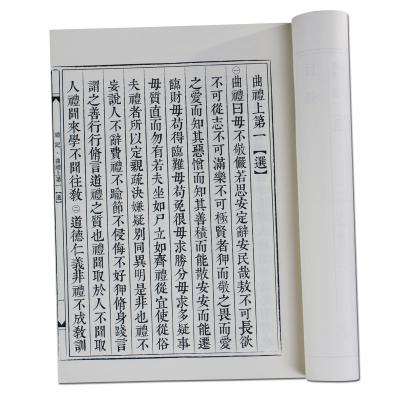 曲禮上第一【選】
㊀曲禮曰毋不敬儼若思安定辭安民哉敖不可長欲
不可從志不可滿樂不可極賢者狎而敬之畏而愛
之愛而知其惡憎而知其善積而能散安安而能遷
臨財毋苟得臨難毋苟免很毋求勝分毋求多疑事
毋質直而勿有若夫坐如尸立如齊禮從宜使從俗
夫禮者所以定親疏決嫌疑別同異明是非也禮不
妄說人不辭費禮不踰節不侵侮不好狎脩身踐言
謂之善行行脩言道禮之質也禮聞取於人不聞取
人禮聞來學不聞往教㊁道德仁義非禮不成教訓
禮記·曲禮上第一【選】